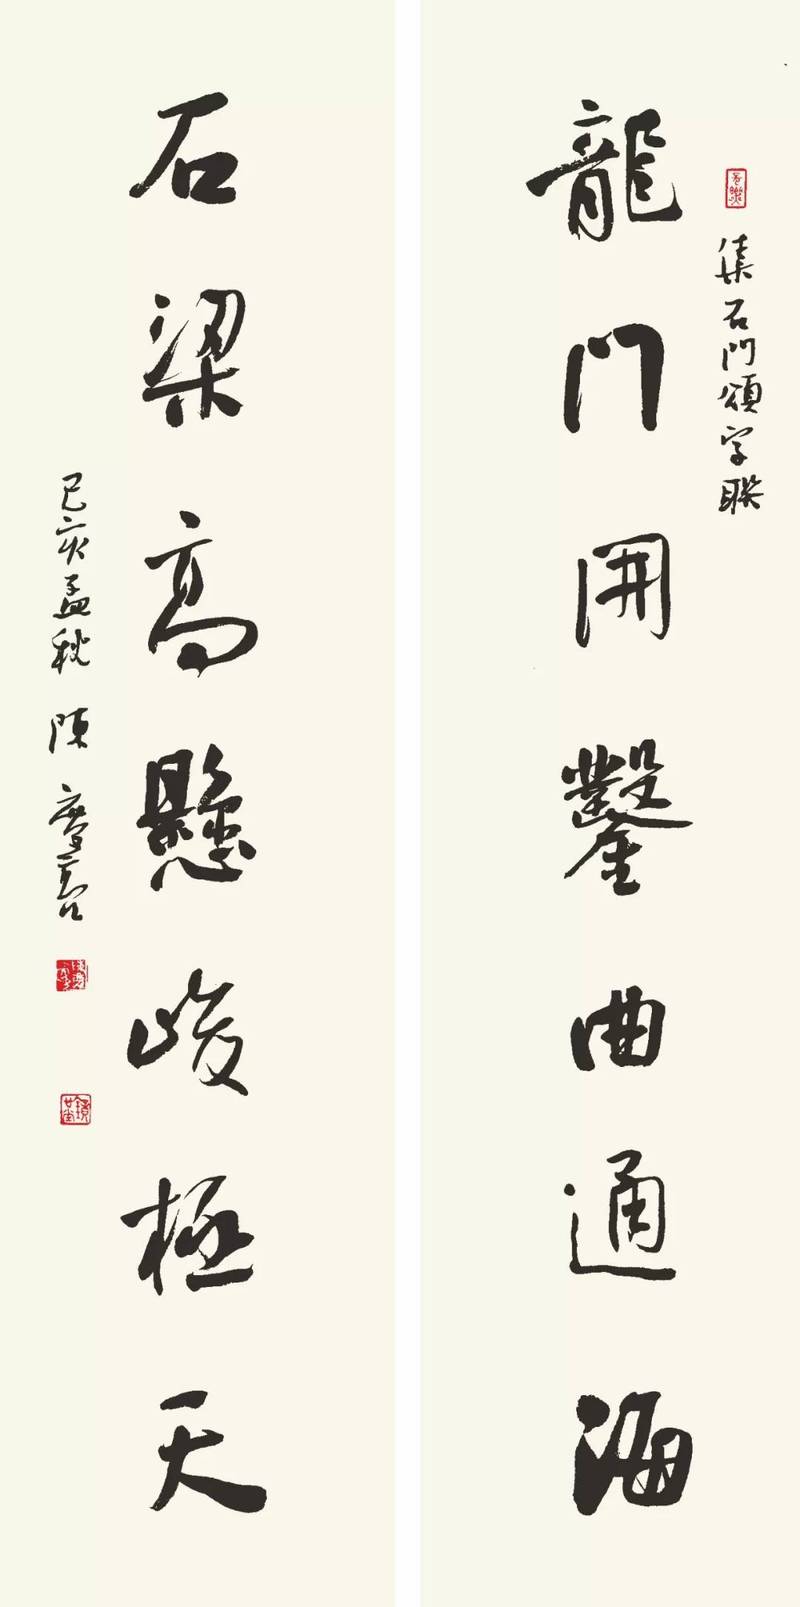 集石門頌字聯
龍門開鑿曲通海
石梁高懸峻極天
己亥孟秋 陳慶云